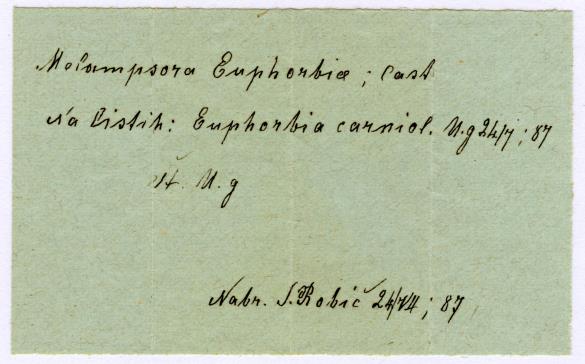 Melampsora Euphorbiæ ; Cast
Na listih: Euphorbia carniol. U.g 24/7 ; 87
št. U.g
Nabr. S. Robič 24/74 ; 87